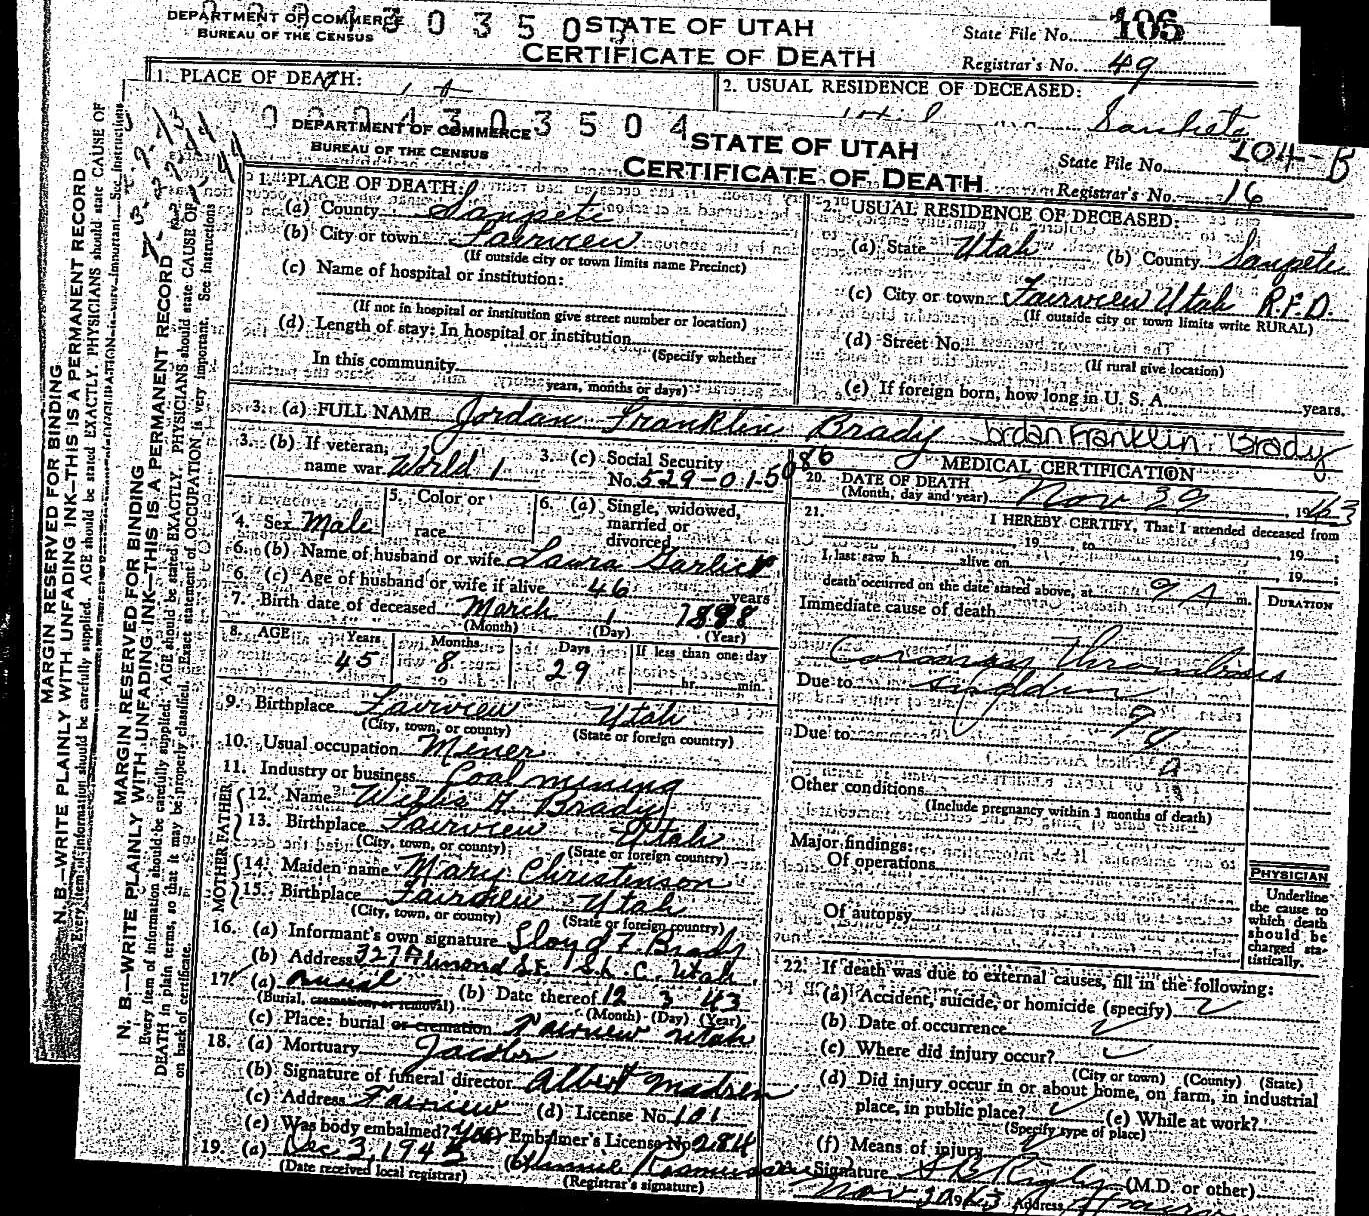 DEPARTMENT OF COMMERCE
BUREAU OF THE CENSUS
STATE OF UTAH
CERTIFICATE OF DEATH
State File No. 106
Registrar's No. 49
1. PLACE OF DEATH:
2. USUAL RESIDENCE OF DECEASED:
Sanpete
0 0 4 3 0 3 5 0 4
DEPARTMENT OF COMMERCE
BUREAU OF THE CENSUS
STATE OF UTAH
CERTIFICATE OF DEATH
State File No. 104-B
Registrar's No. 16
MARGIN RESERVED FOR BINDING
N. B.—WRITE PLAINLY WITH UNFADING INK—THIS IS A PERMANENT RECORD
Every item of information should be carefully supplied. AGE should be stated EXACTLY. PHYSICIANS should state CAUSE OF
MARGIN RESERVED FOR BINDING
N. B.—WRITE PLAINLY WITH UNFADING INK—THIS IS A PERMANENT RECORD
Every item of information should be carefully supplied. AGE should be stated EXACTLY. PHYSICIANS should state CAUSE OF
DEATH in plain terms, so that it may be properly classified. Exact statement of OCCUPATION is very important. See instructions
on back of certificate.
1. PLACE OF DEATH:
(a) County Sanpete
(b) City or town Fairview
(If outside city or town limits name Precinct)
(c) Name of hospital or institution:
(If not in hospital or institution give street number or location)
(d) Length of stay: In hospital or institution
(Specify whether
In this community
years, months or days)
2. USUAL RESIDENCE OF DECEASED:
(a) State Utah (b) County Sanpete
(c) City or town Fairview Utah R.F.D.
(If outside city or town limits write RURAL)
(d) Street No.
(If rural give location)
(e) If foreign born, how long in U. S. A. years.
3. (a) FULL NAME Jordan Franklin Brady Jordan Franklin Brady
3. (b) If veteran, name war World 1
3. (c) Social Security No. 529-01-5086
4. Sex Male
5. Color or race
6. (a) Single, widowed, married or divorced
6. (b) Name of husband or wife Laura Garlick
6. (c) Age of husband or wife if alive 46 years
7. Birth date of deceased March 1 1898
(Month) (Day) (Year)
8. AGE Years 45 Months 8 Days 29 If less than one day hr. min.
9. Birthplace Fairview Utah
(City, town, or county) (State or foreign country)
10. Usual occupation Miner
11. Industry or business Coal mining
FATHER
12. Name Willis F Brady
13. Birthplace Fairview Utah
(City, town, or county) (State or foreign country)
MOTHER
14. Maiden name Mary Christenson
15. Birthplace Fairview Utah
(City, town, or county) (State or foreign country)
16. (a) Informant's own signature Lloyd F. Brady
(b) Address 327 Almond St. S.L.C. Utah
17. (a) Burial (b) Date thereof 12 3 43
(Burial, cremation or removal) (Month) (Day) (Year)
(c) Place: burial or cremation Fairview Utah
18. (a) Mortuary Jacobs
(b) Signature of funeral director Albert Madsen
(c) Address Fairview (d) License No. 101
(e) Was body embalmed? Yes Embalmer's License No. 284
19. (a) Dec 3, 1943 (b) Rasmussen
(Date received local registrar) (Registrar's signature)
MEDICAL CERTIFICATION
20. DATE OF DEATH
(Month, day and year) Nov 29, 1943
21. I HEREBY CERTIFY, That I attended deceased from
19 , to 19 ;
I last saw h alive on 19 ;
death occurred on the date stated above, at 9 A m.
DURATION
Immediate cause of death
Coronary Thrombosis
Due to sudden
Due to
Other conditions
(Include pregnancy within 3 months of death)
Major findings:
Of operations
Of autopsy
PHYSICIAN
Underline
the cause to
which death
should be
charged sta-
tistically.
22. If death was due to external causes, fill in the following:
(a) Accident, suicide, or homicide (specify)
(b) Date of occurrence
(c) Where did injury occur?
(City or town) (County) (State)
(d) Did injury occur in or about home, on farm, in industrial
place, in public place? (e) While at work?
(Specify type of place)
(f) Means of injury
Signature (M.D. or other)
Nov 1943 Address